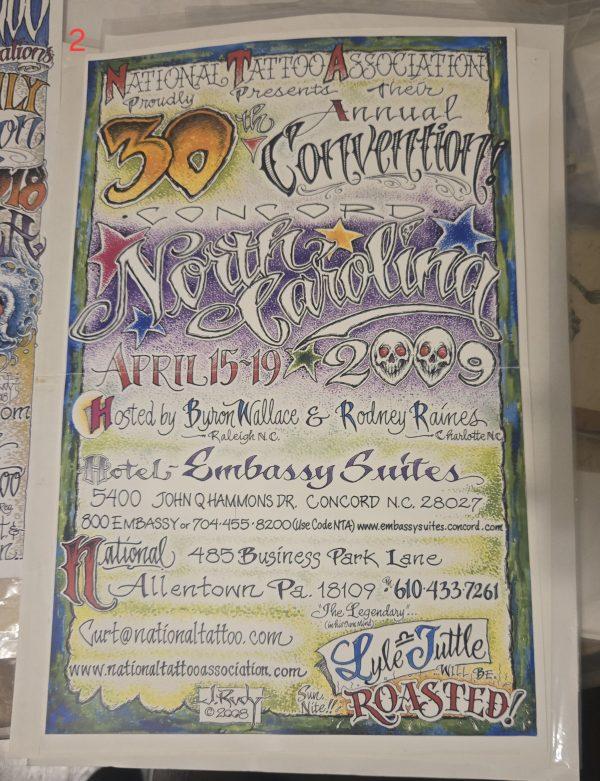 2
National Tattoo Association
Proudly Presents Their
30th Annual
Convention!
Concord
North Carolina
April 15~19 2009
Hosted by Byron Wallace & Rodney Raines
Raleigh N.C. Charlotte N.C.
Hotel~ Embassy Suites
5400 John Q Hammons Dr. Concord N.C. 28027
800 EMBASSY or 704·455·8200 (Use Code NTA) www.embassysuites.concord.com
National 485 Business Park Lane
Allentown Pa. 18109 Ph 610·433·7261
"The Legendary"...
(in his own mind)
Curt@nationaltattoo.com
Lyle Tuttle
www.nationaltattooassociation.com
will be
Sun. Nite!! ROASTED!
J. Rudy
© 2008